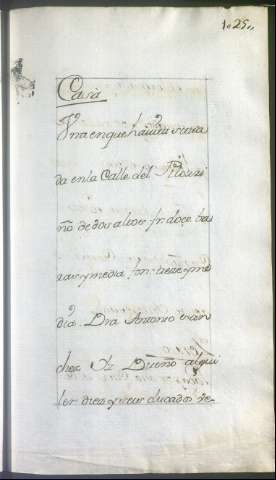 1025,,
Casa
Una en que havita situa
da en la Calle del Pilouri
ño de dos altos fr. doce ba
ras y media fon. trece y me
dia. Dña Antonio
chez Dueño alqui
ler diez y seis ducados ve